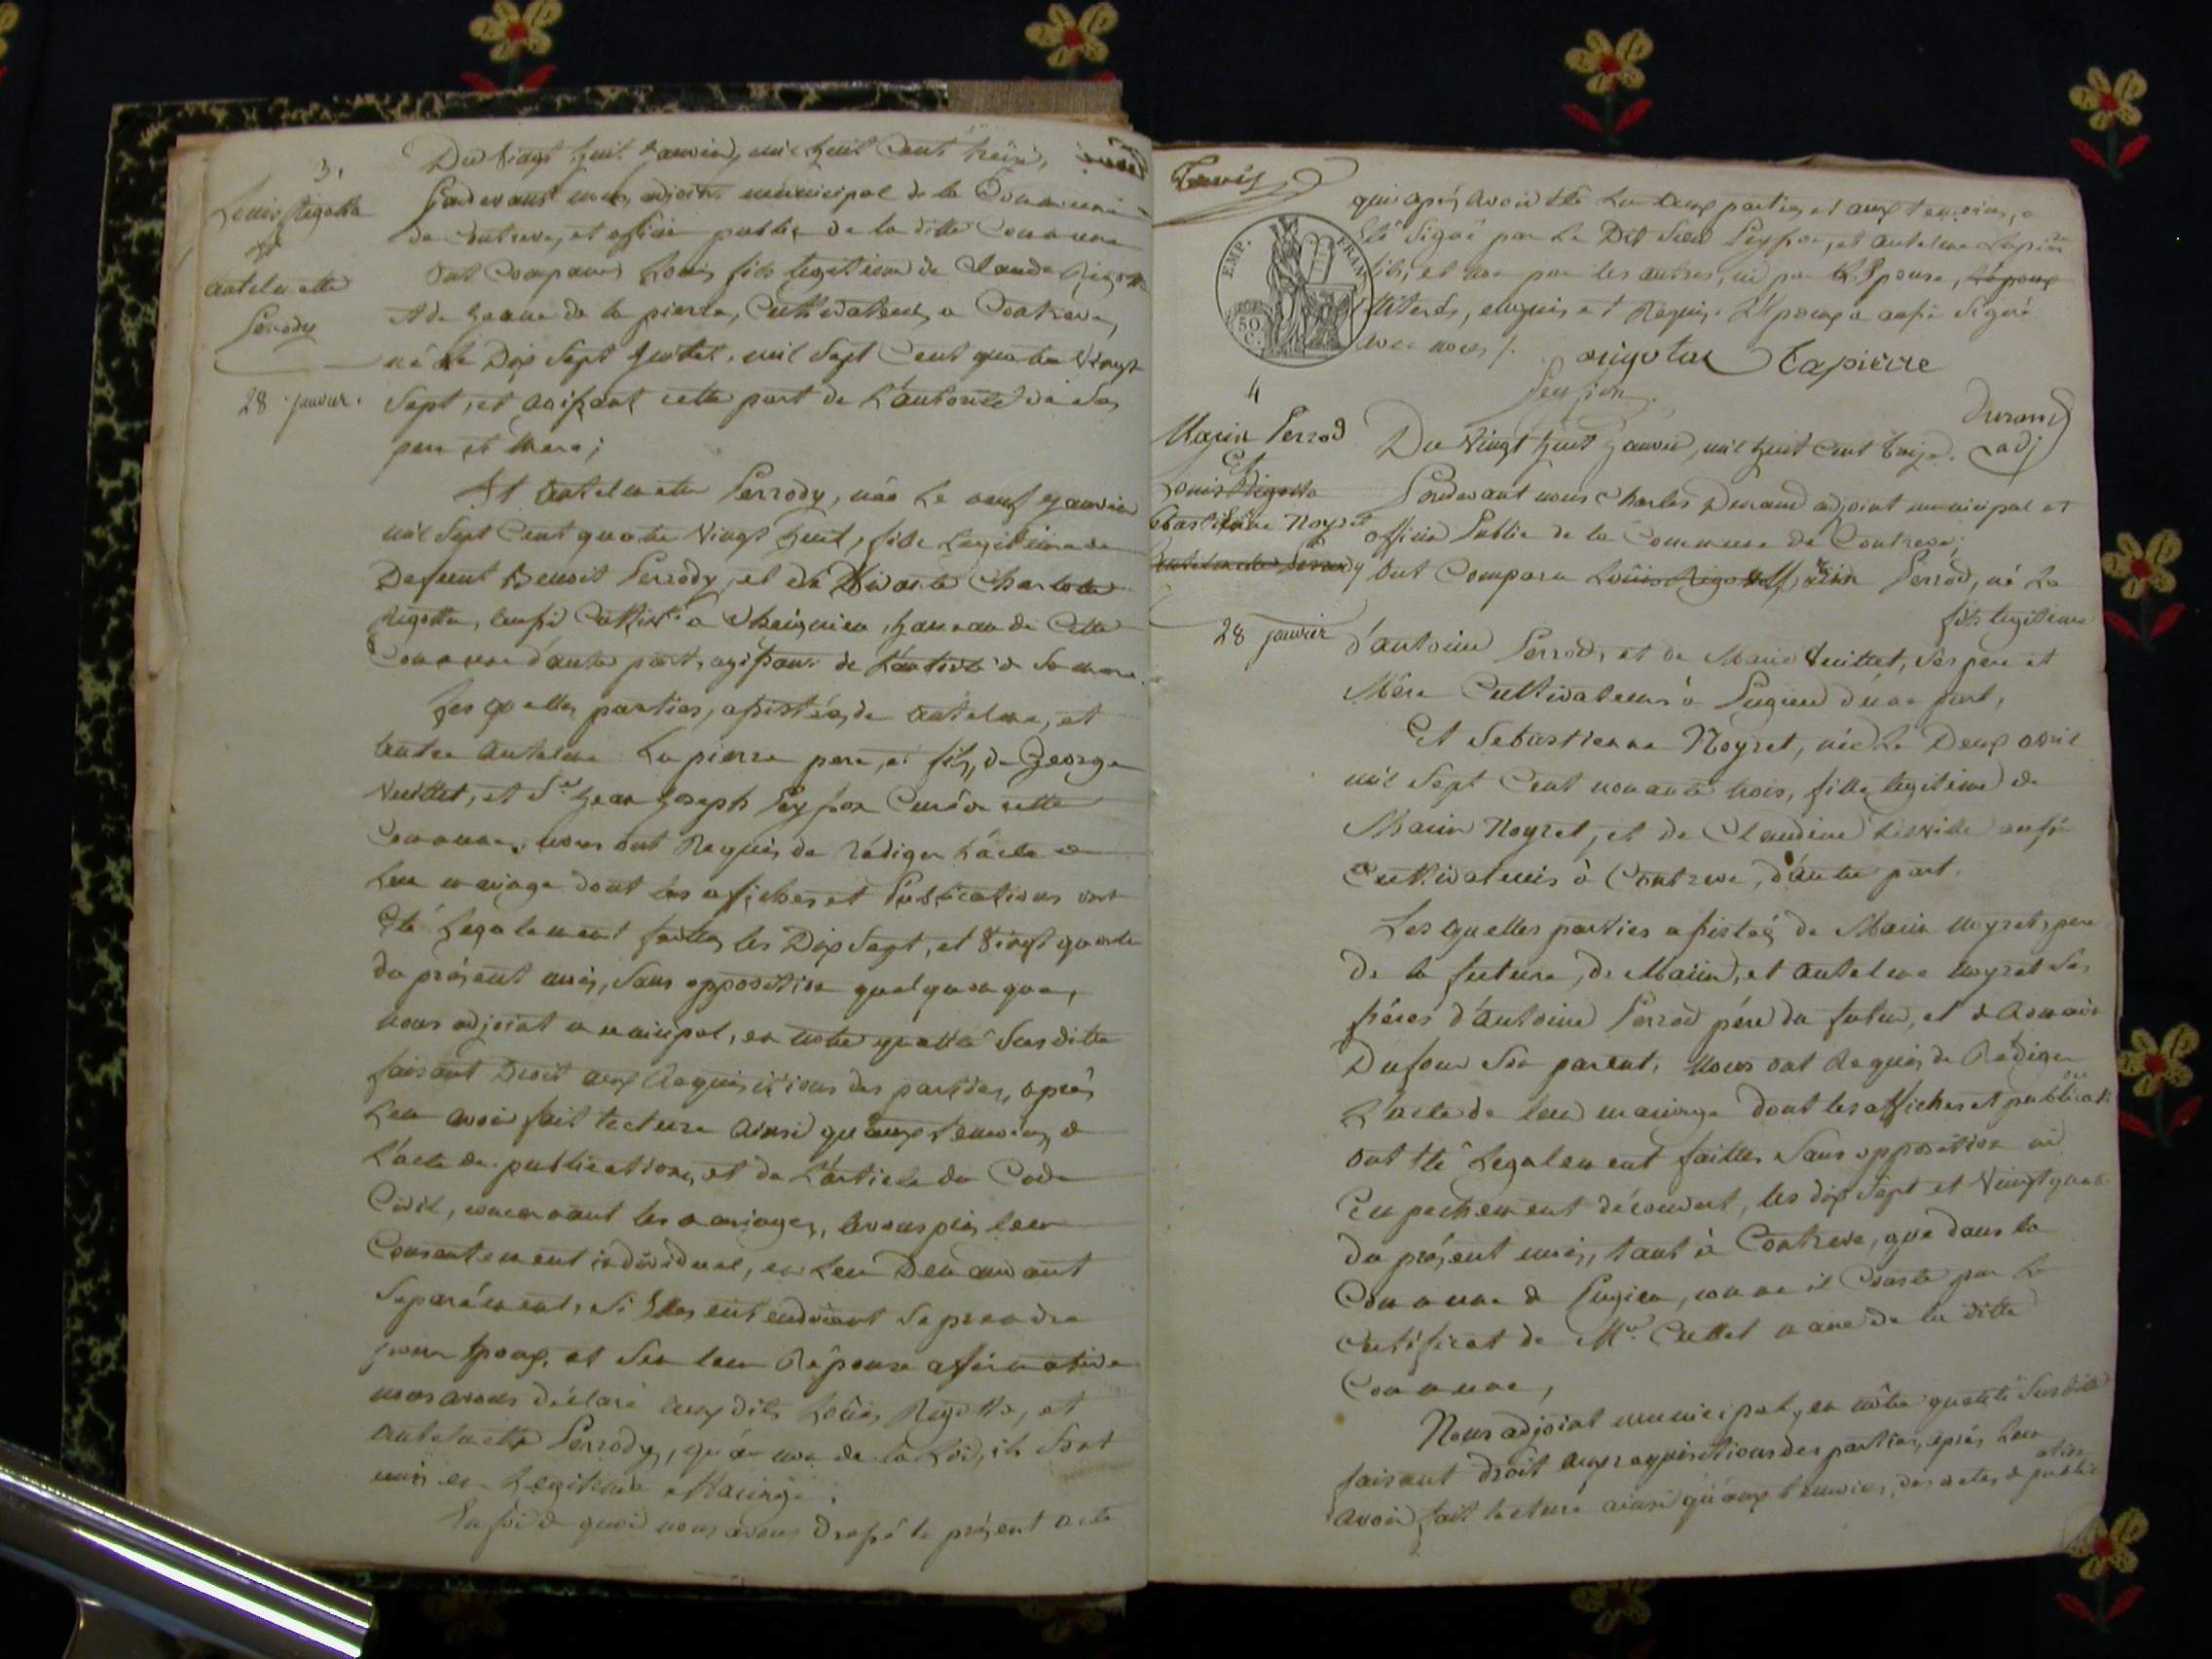 3.
Louis Rigotta
et
antelmette
Perrody
28 janvier.
Du Vingt huit Janvier, mil huit Cent treize,
Pardevant nous, adjoint municipal de la Commune
de Contrevoz, et officier public de la ditte Commune
Ont Comparus Louis fils legitime de Claude Rigotta
et de Jeanne de la pierre, Cultivateurs a Contrevoz,
né le Dix Sept Juillet, mil Sept Cent quatre Vingt
Sept, et agissant cette part de L'autorité de Ses
pere et Mere;
Et antelmette Perrody, née Le neuf Janvier
mil Sept Cent quatre Vingt huit, fille Legitime de
Defunt Benoit Perrody, et de Vivante Charlotte
Rigotta, aussi Cultiv. a Cheignieu, hameau de Cette
Commune d'autre part, agissant de L'autorité de Sa mere.
Lesquelles parties, assistées de antelme, et
autre antelme Lapierre pere, et fils, de George
Veuillet, et Sr. Jean Joseph Peysson Curé de cette
Commune, nous ont Requis de rédiger L'acte de
Leur mariage dont les affiches et Publications ont
Eté Legalement faittes les Dix Sept, et Vingt quatre
du présent mois, Sans opposition quelquonque,
nous adjoint municipal, en notre qualité Susditte
faisant Droit aux Requisitions des parties, après
Leur avoir fait lecture ainsi qu'aux temoins, de
L'acte de publications, et de L'article du Code
Civil, concernant les mariages, avons pris leur
Consentement individuel, en leur Demandant
Separément, Si Elles entendoient Se prendre
pour Epoux, et Sur leur Réponse affirmative
nous avons déclaré auxdits Louis Rigotta, et
antelmette Perrody, qu'au nom de la Loi, ils Sont
unis en Legitime Mariage,
En foi de quoi nous avons Dressé le présent acte
EMP. FRAN
50 C.
qui après avoir été Lu aux parties, et aux temoins, a
été Signé par Le Dit Sieur Peysson, et antelme Lapierre
fils, et non par les autres, ni par L'Epouse, L'époux
illiterés, enquis et Requis. L'Epoux a aussi Signé
avec nous /.
rigotta Lapierre
Peysson
Durand
adj
4
Marin Perrod
Et
Louis Rigotta
Sebastienne Noyret
Antelmette Perrody
28 janvier
Du Vingt huit Janvier, mil huit Cent treize.
Pardevant nous Charles Durand adjoint municipal et
officier Public de la Commune de Contrevoz;
Ont Comparu Louis Rigotta Marin Perrod, né Le
fils legitime
d'antoine Perrod, et de Marie Veuillet, Ses pere et
Mére Cultivateurs à Pugieu d'une part,
Et Sebastienne Noyret, née Le Deux avril
mil Sept Cent nonante trois, fille legitime de
Marin Noyret, et de Claudine aussi
Cultivateurs à Contrevoz, d'autre part.
Lesquelles parties assistées de Marin Noyret, pere
de la future, de Marin, et antelme noyret Ses
fréres d'antoine Perrod pére du futur, et de
Dufour Son parent, nous ont Requis de Rédiger
L'acte de leur mariage dont les affiches et publications
ont été Legalement faittes Sans opposition ni
Empechement découvert, les dix Sept et Vingt quatre
du présent mois, tant à Contrevoz, que dans la
Commune de Pugieu, comme il Conste par le
certificat de Mr. Cullet maire de la ditte
Commune,
Nous adjoint municipal, en nôtre qualité Susditte
faisant droit aux requisitions des parties, après leur
avoir fait lecture ainsi qu'aux temoins, des actes de publications